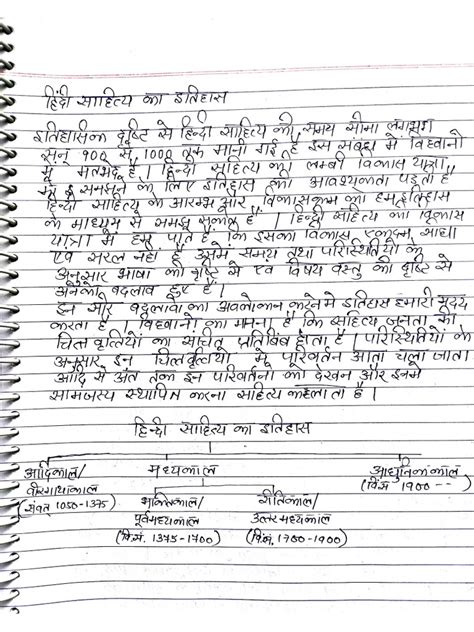 हिंदी साहित्य का इतिहास
इतिहासिक दृष्टि से हिन्दी साहित्य की समय सीमा लगभग
सन् 900 से 1000 तक मानी गई है इस संबंध में विध्वानो
में मतभेद है। हिन्दी साहित्य की लम्बी विकास यात्रा
को समझने के लिए इतिहास की आवश्यकता पड़ती है
हिन्दी साहित्य के आरम्भ और विकासक्रम को हम इतिहास
के माध्यम से समझ सकते है। हिन्दी साहित्य की विकास
यात्रा में हम पाते है कि इसका विकास एकदम सीधा
एवं सरल नहीं है उसमे समय तथा परिस्थितियो के
अनुसार भाषा की दृष्टि से एवं विषय वस्तु की दृष्टि से
अनेको बदलाव हुए है।
इन सारे बदलावो का अवलोकन करने मे इतिहास हमारी मदद
करता है। विध्वानो का मानना है कि साहित्य जनता की
चित्तवृत्तियों का संचित प्रतिबिंब होता है। परिस्थितियो के
अनुसार इन चित्तवृत्तियो में परिवर्तन आता चला जाता
आदि से अंत तक इन परिवर्तनो को देखना और इनमे
सामंजस्य स्थापित करना साहित्य कहेलाता है।
हिन्दी साहित्य का इतिहास
आदिकाल/ मध्यकाल आधुनिककाल
वीरगाथाकाल (वि.सं. 1900 --)
(संवत् 1050-1375) भक्तिकाल/ रीतिकाल/
पूर्वमध्यकाल उत्तरमध्यकाल
(वि.सं. 1375-1700) (वि.सं. 1700-1900)